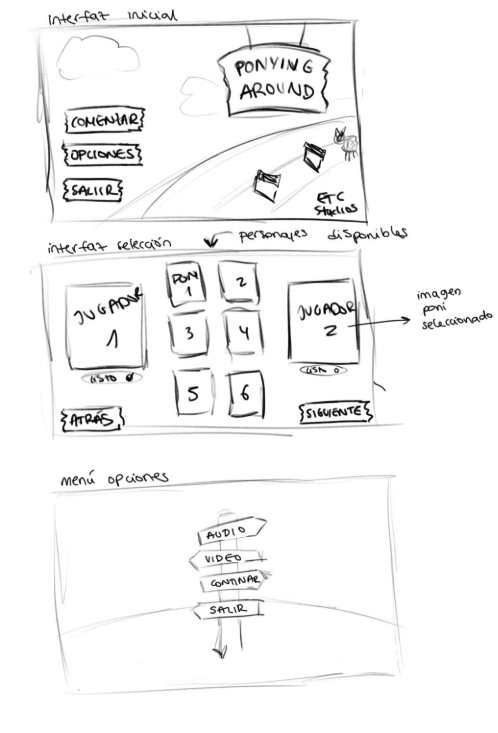 interfaz inicial
PONYING
AROUND
COMENTAR
OPCIONES
SALIIR
ETC
Studios
interfaz selección
personajes disponibles
JUGADOR
1
PONI
1
2
3
4
5
6
JUGADOR
2
imagen
poni
seleccionado
LISTO
LISTO
ATRÁS
SIGUIENTE
menú opciones
AUDIO
VIDEO
CONTINAR
SALIR